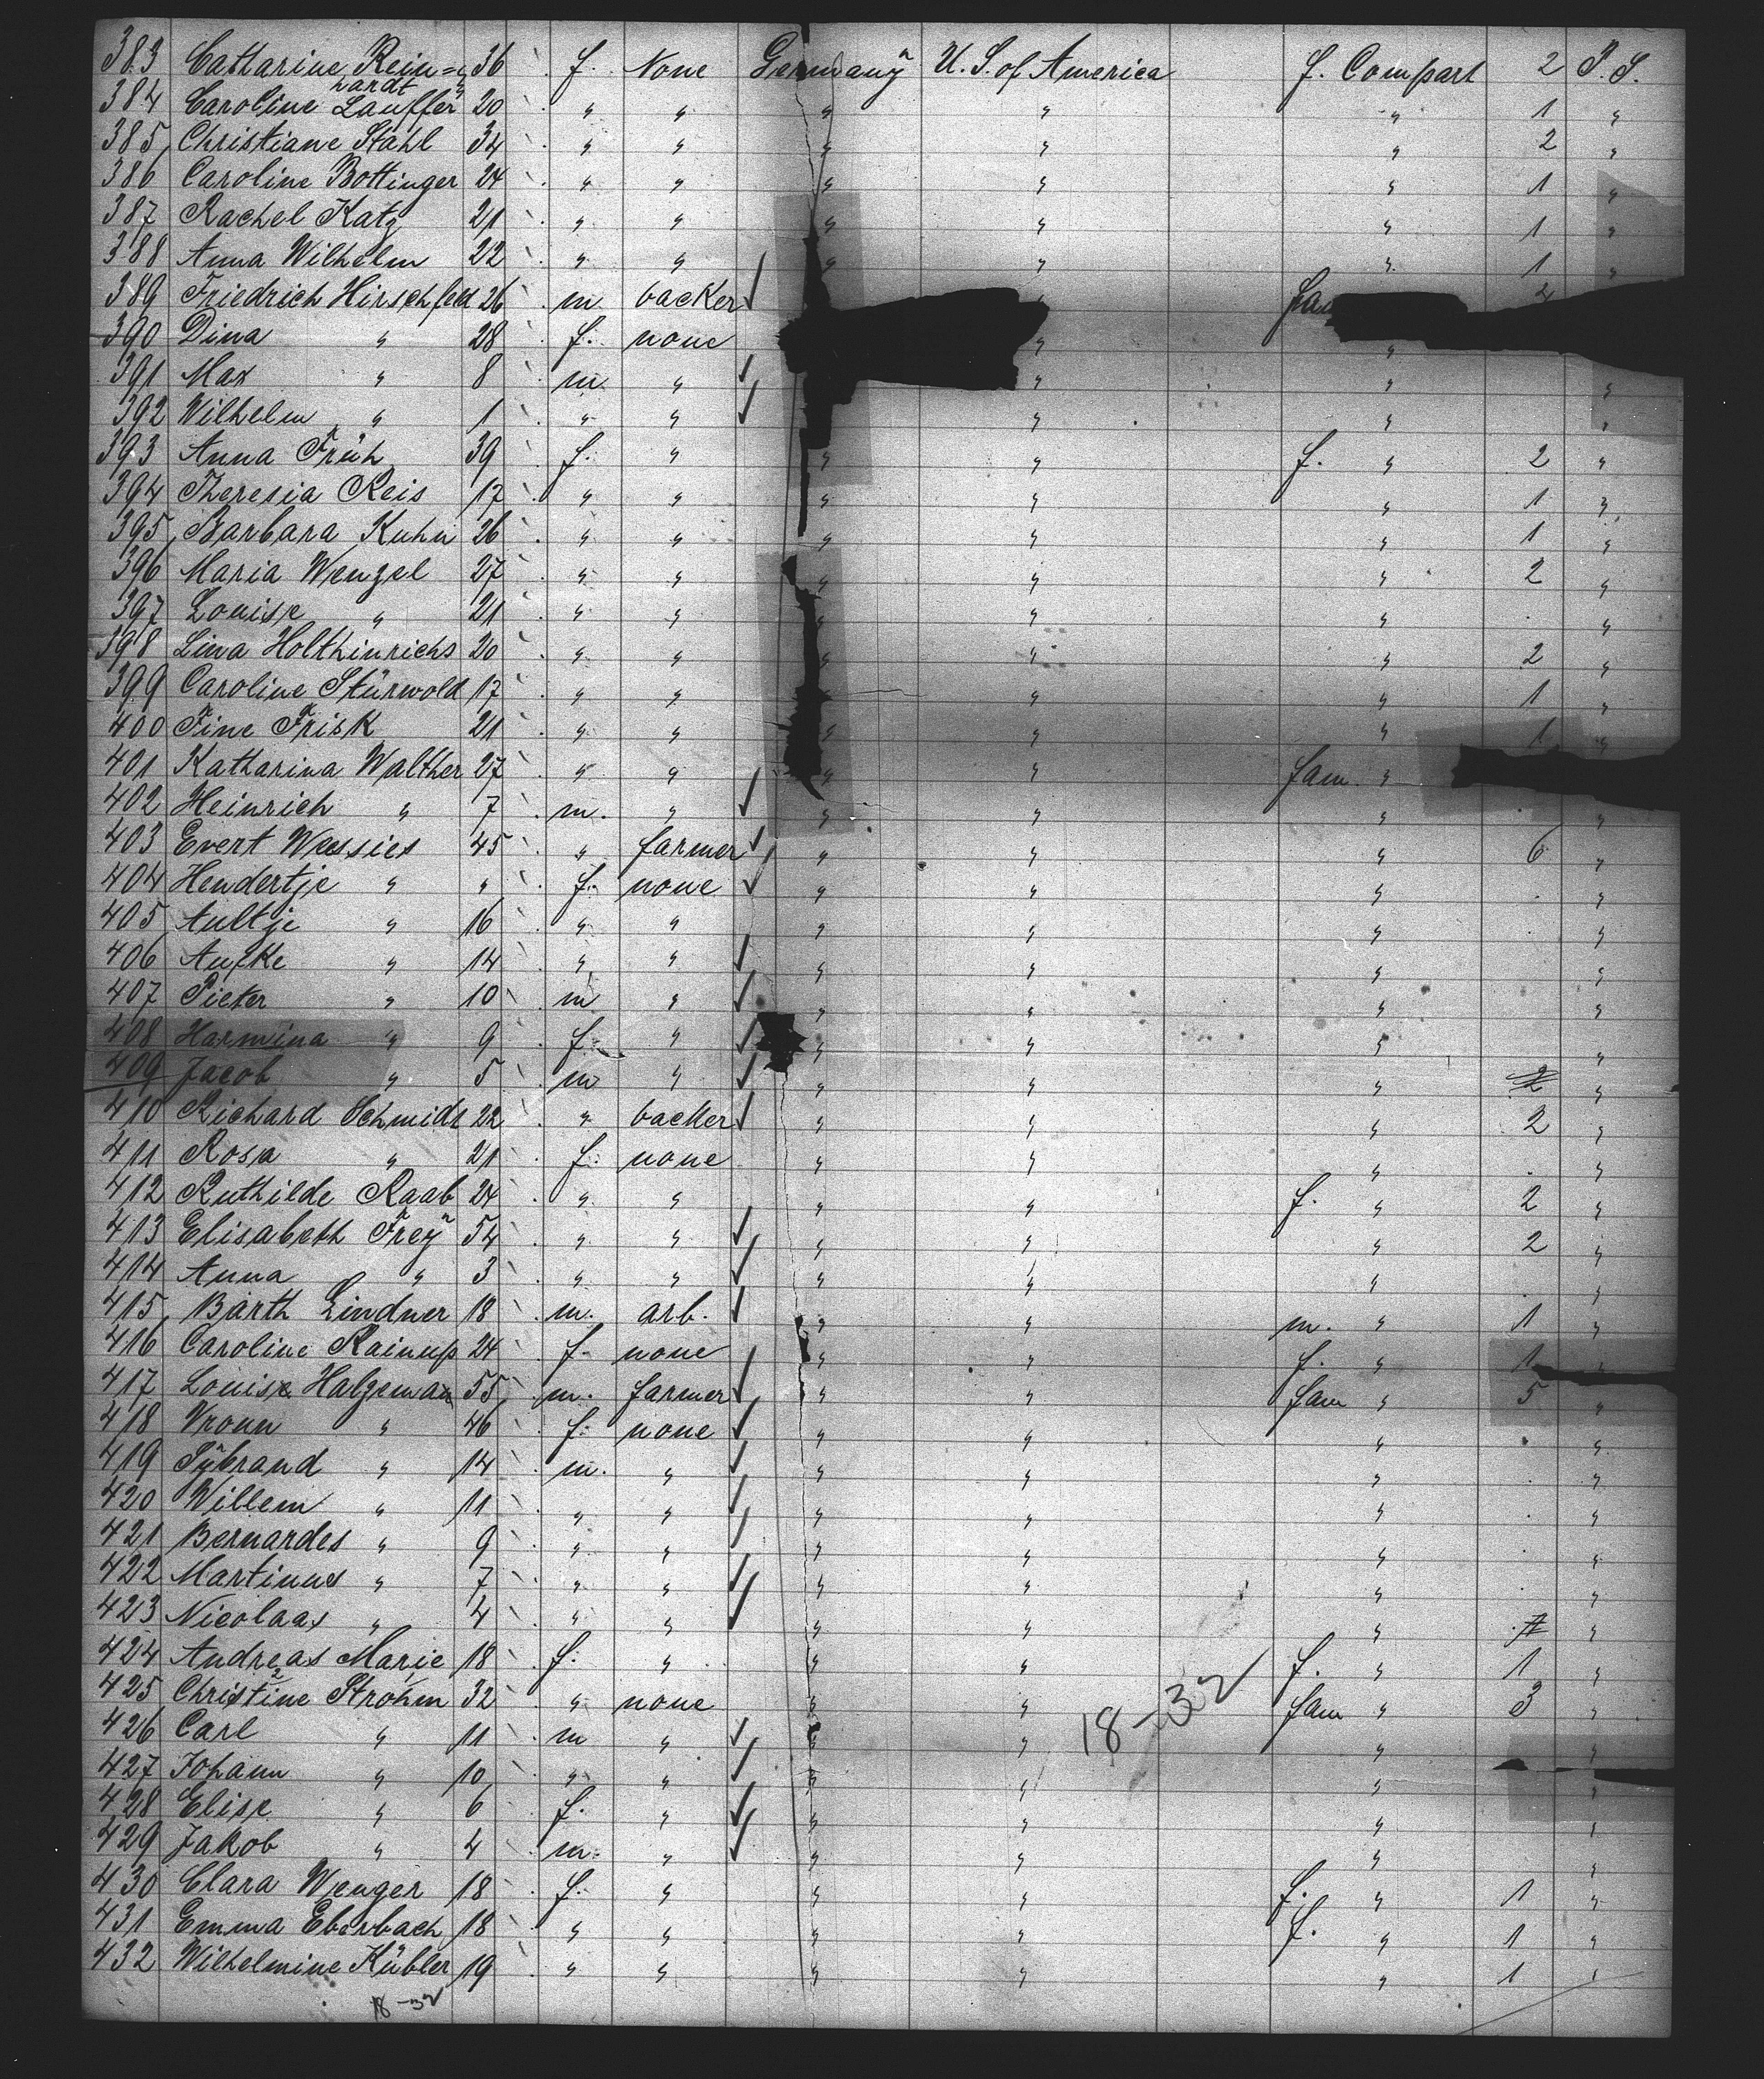 383 Catharine Rein= 36 f. None Germany U. S. of America f. Compart 2 P. S.
hardt
384 Caroline Lauffer 20 " " " " " 1 "
385 Christiane Stahl 34 " " " " " 2 "
386 Caroline Bottinger 24 " " " " " 1 "
387 Rachel Katz 21 " " " " " 1 "
388 Anna Wilhelm 22 " " " " " 1 "
389 Friedrich Hirschfeld 26 m backer
390 Dina " 28 f. none " "
391 Max " 8 m " " " "
392 Wilhelm " 1 " " " " "
393 Anna Früh 39 f. " " " f. " 2 "
394 Theresia Reis 17 " " " " " 1 "
395 Barbara Kuhn 26 " " " " " 1 "
396 Maria Wenzel 27 " " " " " 2 "
397 Louise " 21 " " " " " . "
398 Lina Holthinrichs 20 " " " " " 2 "
399 Caroline Stürwold 17 " " " " " 1 "
400 Fine Frisk 21 " " " " " 1 "
401 Katharina Walther 27 " " " " fam. "
402 Heinrich " 7 m. " " " " . "
403 Evert Wessies 45 " farmer " " " 6 "
404 Hendertje " " f. none " " " . "
405 Aultje " 16 " " " " " . "
406 Aufke " 14 " " " " " "
407 Pieter " 10 m " " " " "
408 Harmina " 9 f. " " " " "
409 Jacob " 5 m " " " " 2 "
410 Richard Schmidt 22 " backer " " " 2 "
411 Rosa " 21 f. none " " " . "
412 Ruthilde Raab 24 " " " " f. " 2 "
413 Elisabeth Frey 54 " " " " " 2 "
414 Anna " 3 " " " " " . "
415 Barth Lindner 18 m. arb. " " m. " 1 "
416 Caroline Rainup 24 f. none " " f. " 1
417 Louise Halzeman 55 m. farmer " " fam " 5 "
418 Vroun " 46 f. none " " " . "
419 Sybrand " 14 m. " " " " . "
420 Willem " 11 " " " " " . "
421 Bernardes " 9 " " " " " . "
422 Martinus " 7 " " " " " . "
423 Nicolaas " 4 " " " " " 7 "
424 Andreas Marie 18 f. " " " f. " 1 "
425 Christine Strohm 32 " none " " fam " 3 "
426 Carl " 11 m " " " " "
427 Johann " 10 " " " " "
428 Elise " 6 f. " " " " "
429 Jakob " 4 m. " " " " "
430 Clara Wenger 18 f. " " " f. " 1 "
431 Emma Eberbach 18 " " " " f. " 1 "
432 Wilhelmine Kübler 19 " " " " " 1 "
18-32
18-32